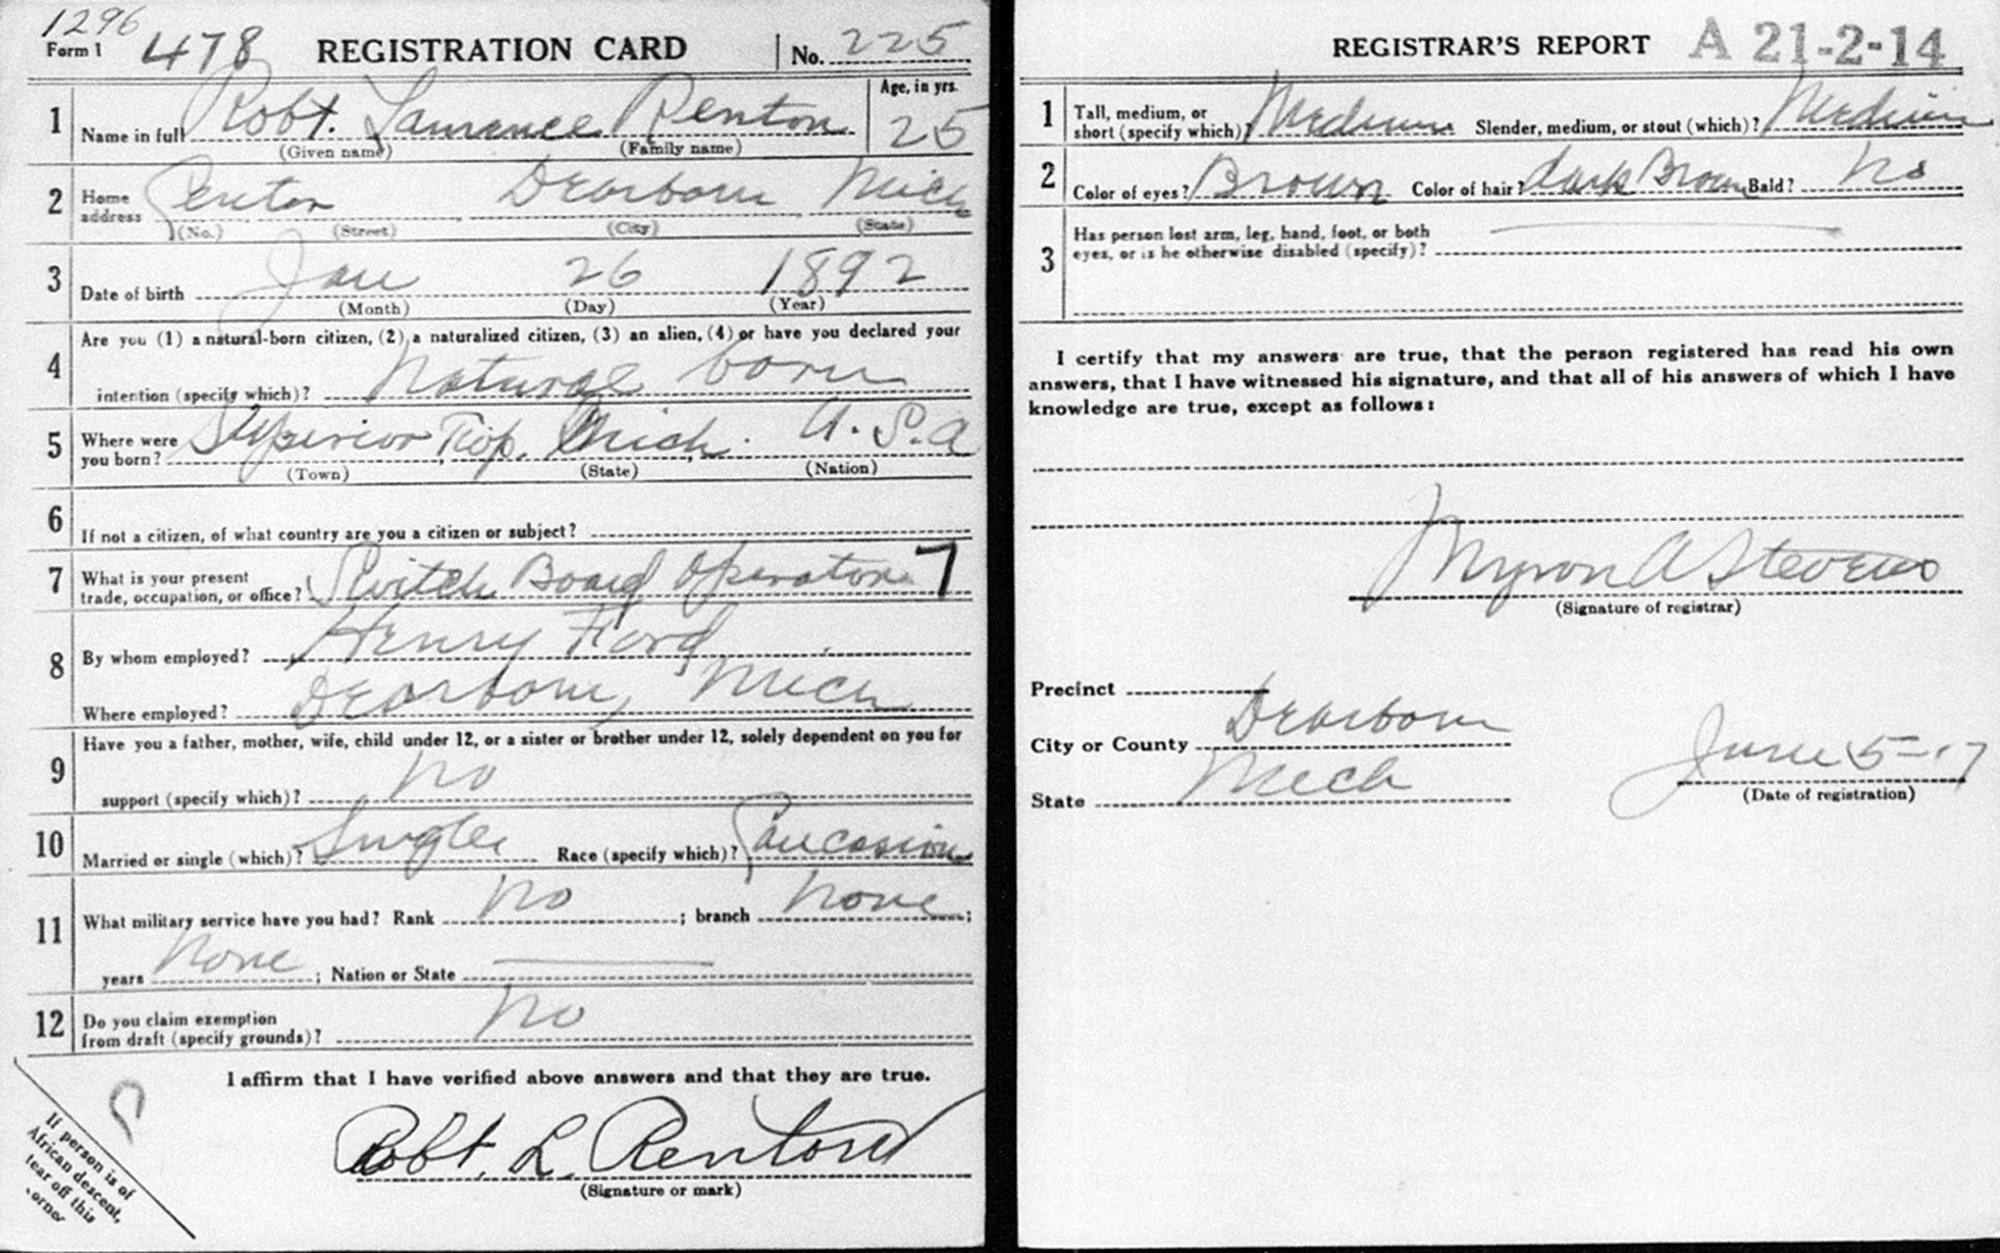 1296
Form 1 478 REGISTRATION CARD No. 225
1 Name in full Robt. Laurence Renton Age, in yrs. 25
(Given name) (Family name)
2 Home address Dearborn Mich
(No.) (Street) (City) (State)
3 Date of birth Jan 26 1892
(Month) (Day) (Year)
4 Are you (1) a natural-born citizen, (2) a naturalized citizen, (3) an alien, (4) or have you declared your
intention (specify which)? Natural born
5 Where were you born? Superior Twp. Mich. U.S.A
(Town) (State) (Nation)
6 If not a citizen, of what country are you a citizen or subject?
7 What is your present
trade, occupation, or office? Switch Board Operator 7
8 By whom employed? Henry Ford
Where employed? Dearborn, Mich
9 Have you a father, mother, wife, child under 12, or a sister or brother under 12, solely dependent on you for
support (specify which)? No
10 Married or single (which)? Single Race (specify which)? Caucasian
11 What military service have you had? Rank No ; branch None ;
years None ; Nation or State
12 Do you claim exemption
from draft (specify grounds)? No
I affirm that I have verified above answers and that they are true.
Robt. L. Renton
(Signature or mark)
If person is of
African descent,
tear off this
corner
REGISTRAR'S REPORT A 21-2-14
1 Tall, medium, or
short (specify which)? Medium Slender, medium, or stout (which)? Medium
2 Color of eyes? Brown Color of hair? dark Brown Bald? No
3 Has person lost arm, leg, hand, foot, or both
eyes, or is he otherwise disabled (specify)?
I certify that my answers are true, that the person registered has read his own
answers, that I have witnessed his signature, and that all of his answers of which I have
knowledge are true, except as follows:
Myron A Stevens
(Signature of registrar)
Precinct
City or County Dearborn
State Mich June 5-17
(Date of registration)